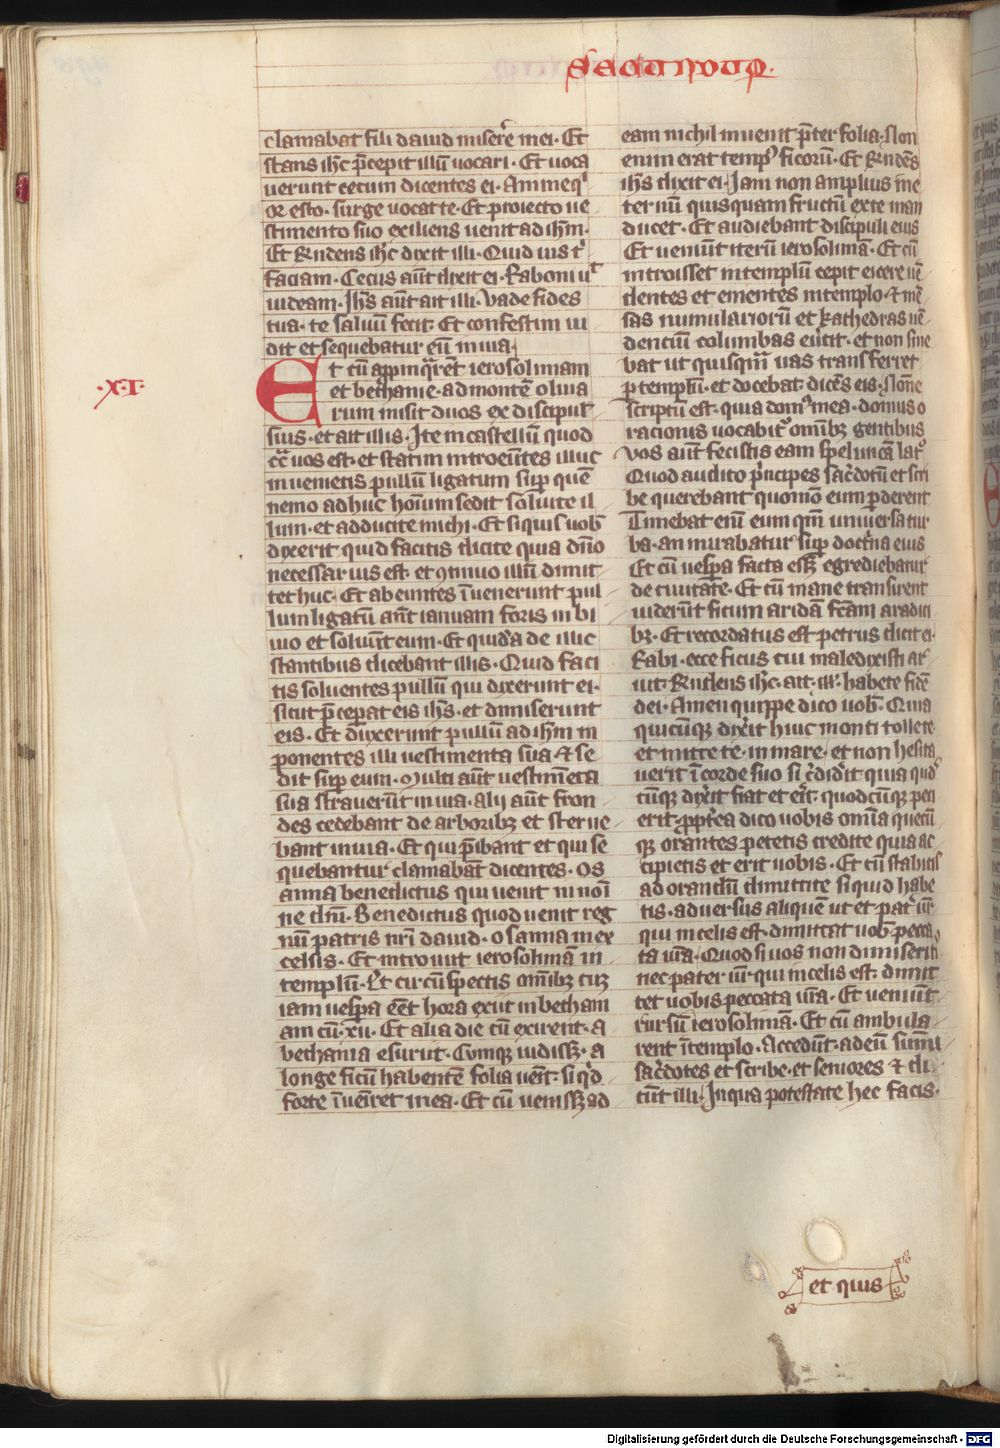 Secundum
clamabat fili dauid miser̃e mei. Et
stans ih̃c p̃cepit illũ uocari. Et uoca
uerunt cecum dicentes ei. Animeqͥ
or esto. surge uocat te. Et proiecto ue
stimento suo exiliens uenit ad ihm̃.
Et R̃ndens ih̃c dixit illi. Quid uis tͥ
faciam. Cecus aũt dixit ei. Raboni uͭ
uideam. Ihs̃ aũt ait illi. Vade fides
tua. te saluũ fecit. Et confestim ui
dit et sequebatur eũ in uia.
.XI.
Et cũ app̃inq̃rẽt ierosolimam
et bethanie. ad montẽ oliua
rum misit duos ex discipul̃
suis. et ait illis. Ite in castellũ quod
cͣt̃ uos est. et statim introeũtes illuc
inuenietis pullũ ligatum sup̃ quẽ
nemo adhuc hoĩum sedit soluite il
lum. et adducite michi. Et si quis uob̃
dixerit quid facitis dicite quia dño
necessarius est. et ꝯtinuo illũ dimit
tet huc. Et abeuntes ĩuenerunt pul
lum ligatũ añt ianuam foris in bi
uio et soluũt eum. Et quid̃a de illic
stantibus dicebant illis. Quid faci
tis soluentes pullũ qui dixerunt ei.
sicut p̃ceperat eis ihs̃. et dimiserunt
eis. Et duxerunt pullũ ad ihm̃ in
ponentes illi uestimenta sua & se
dit sup̃ eum. Multi aũt uestim̃eta
sua strauerũt in uia. alij aũt fron
des cedebant de arboribꝫ et sterne
bant in uia. Et qui p̃ibant et qui se
quebantur clamabãt dicentes. Os
anna benedictus qui uenit in noĩ
ne dñi. Benedictus quod uenit reg
nũ patris nr̃i dauid. osanna in ex
celsis. Et introiuit ierosolimã in
templũ. Et circũspectis omĩbꝫ cuꝫ
iam uesp̃a eẽt hora exiit in betham
am cũ .xii. Et alia die cũ exirent. a
bethania esurut. Cumqꝫ uidissꝫ. a
longe ficũ habentẽ folia ueñt. si qͥd
forte ĩuẽiret in ea. Et cũ uenissꝫ ad
eam nichil inuenit p̃ter folia. Non
enim erat temp᷒ ficorũ. Et R̃ndẽs
ihs̃ dixit ei. Iam non amplius ĩ̃e
ternũ quisquam fructũ ex te man
ducet. Et audiebant discipuli eius
Et ueniũt iterũ ierosolimã. Et cũ
introisset in templũ cepit eicere uẽ
dentes et ementes in templo. & mẽ
sas numulariorũ et kathedras uẽ
dentiũ columbas eũtit. et non sine
bat ut quisqm̃ uas transferret
ꝑ templũ. et docebat dicẽs eis. Nõne
scriptũ est. quia dom᷒ mea. domus o
rationis uocabit᷒ omĩbꝫ gentibus
Vos aũt fecistis eam speluncã lat᷒
Quod audito p̃ncipes sac̃dotũ et scri
be querebant quom̃o eum ꝑderent
Timebat eñi eum qm̃ uniuersa tur
ba. an mirabatur sup̃ doctͥna eius
Et cũ uesp̃a facta essꝫ egrediebatur
de ciuitate. Et cũ mane transirent
uiderũt ficum aridã fc̃am a radici
bꝫ. Et recordatus est petrus dicit ei.
Rabi. ecce ficus cui maledixisti ar
uit. R̃ndens ih̃c. ait. ill᷒. habete fidẽ
dei. Amen quippe dico uob̃. Quia
quicũqꝫ dix̃it huic monti tollere
et mitte te. in mare. et non hesita
uerit ĩ corde suo si c̃did̃it quia qͥd
cũqꝫ dix̃it fiat et eͥt. quodcũqꝫ peci
erit. propt̃ea dico uobis omĩa quecũ
qꝫ orantes petetis credite quia ac
cipietis et erit uobis. Et cũ stabitis
ad orandũ dimittite si quid habe
tis. aduersus aliquẽ ut et pat̃ ur̃
qui in celis est. dimittat uob̃ pecca
ta ur̃a. Quod si uos non dimiserit̃
nec pater ur̃ qui in celis est. dimit
tet uobis peccata ur̃a. Et ueniũt
rursũ ierosolimã. Et cũ ambula
rent ĩ templo. Accedũt. ad eũ sum̃i
sac̃dotes et scribe. et seniores & di
cũt illi. In qua potestate hec facis.
et quis
Digitalisierung gefördert durch die Deutsche Forschungsgemeinschaft - DFG